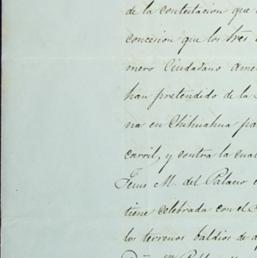 de la contestacion que
concesion que los tres
mero Ciudadano Ame
han pretendido de la
na en Chihuahua pa
carril, y contra la cua
M. del Palacio
tiene celebrada con el
los terrenos baldios de